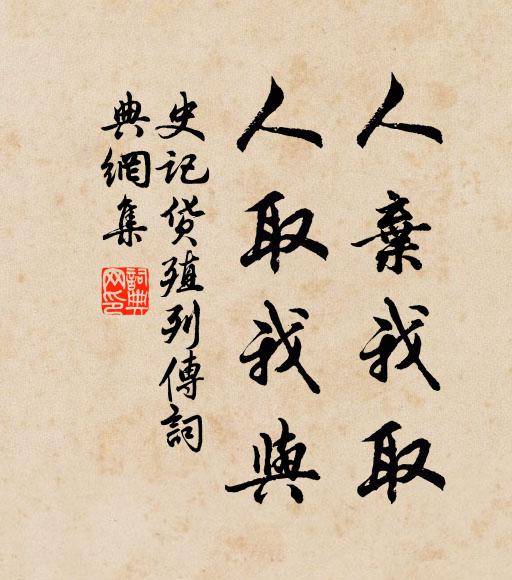 人棄我取
人取我與
史記貨殖列傳詞
典網集
詞典
网印